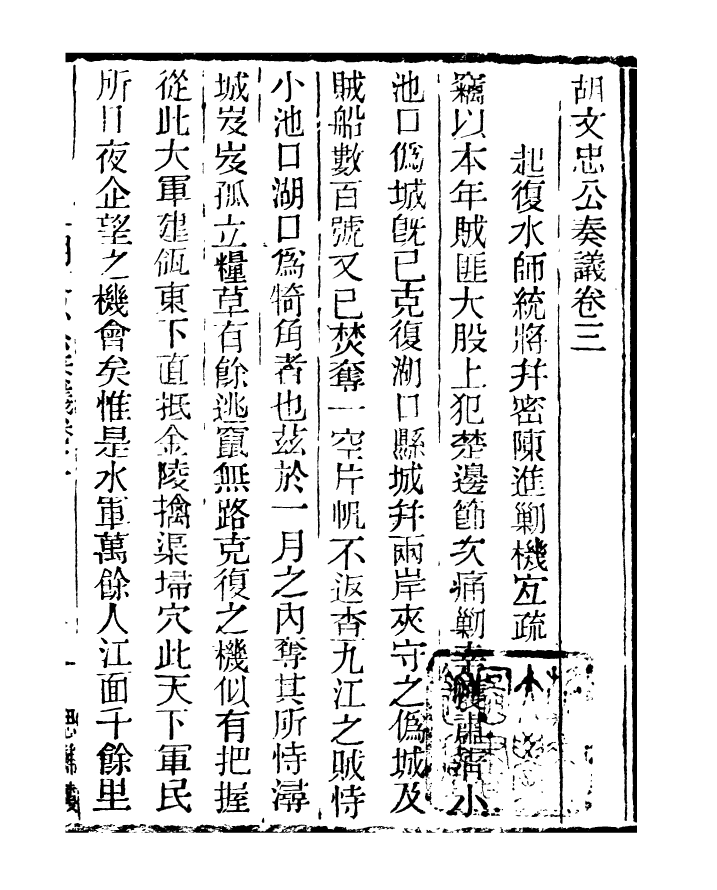 胡文忠公奏議卷三
起復水師統將幷密陳進剿機宐疏
竊以本年賊匪大股上犯楚邊節次痛剿幸獲肅清小
池口僞城旣已克復湖口縣城幷兩岸夾守之僞城及
賊船數百號又已焚奪一空片帆不返查九江之賊恃
小池口湖口爲犄角者也茲於一月之內奪其所恃潯
城岌岌孤立糧草有餘逃竄無路克復之機似有把握
從此大軍建瓴東下直抵金陵擒渠埽穴此天下軍民
所日夜企望之機會矣惟是水軍萬餘人江面千餘里